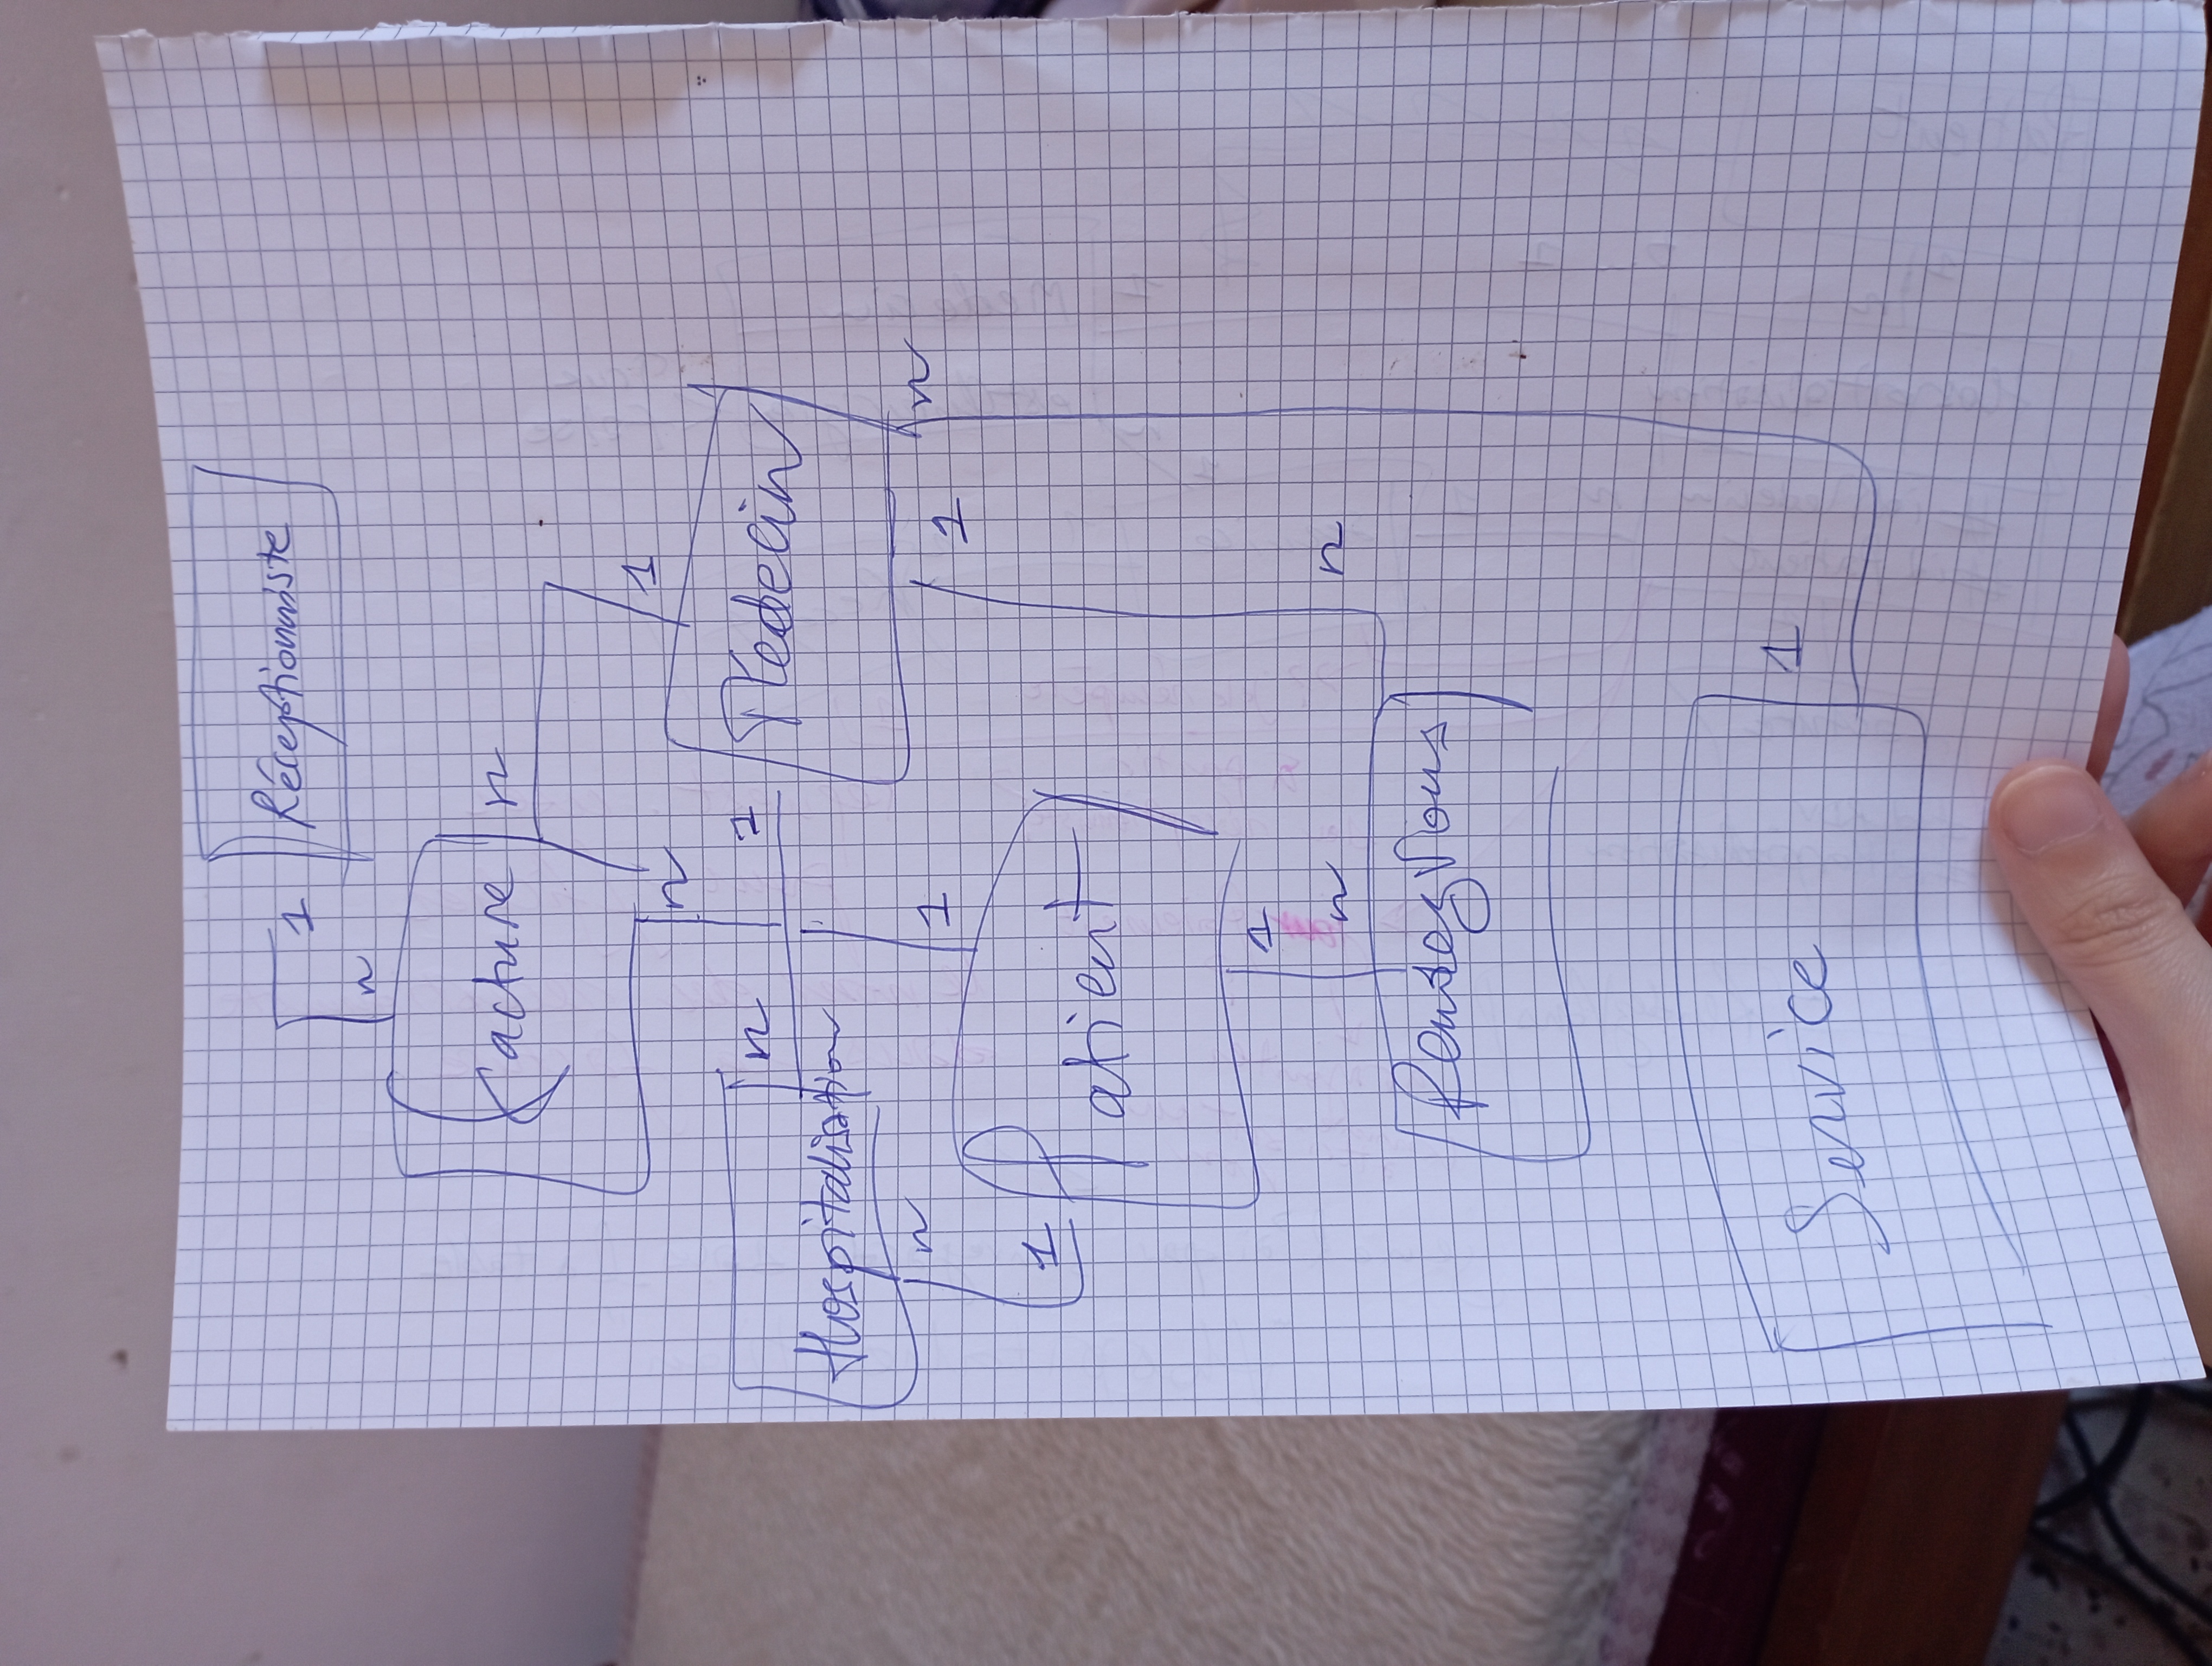 1 Réceptionniste
n
facture n
1
n
n 1 Medecin
Hospitalisation
n 1 1 n
1
Patient
1
n n
Rendez Vous
1
Service